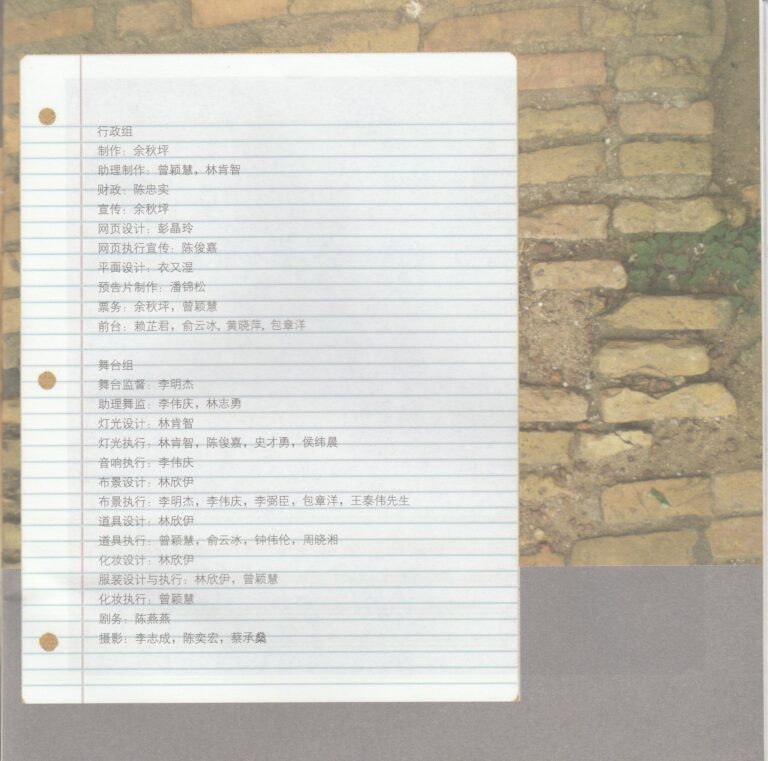 行政组
制作：余秋坪
助理制作：曾颖慧，林肯智
财政：陈忠实
宣传：余秋坪
网页设计：彭晶玲
网页执行宣传：陈俊嘉
平面设计：衣又湿
预告片制作：潘锦松
票务：余秋坪，曾颖慧
前台：赖芷君，俞云冰，黄晓萍，包章洋
舞台组
舞台监督：李明杰
助理舞监：李伟庆，林志勇
灯光设计：林肯智
灯光执行：林肯智，陈俊嘉，史才勇，侯纬晨
音响执行：李伟庆
布景设计：林欣伊
布景执行：李明杰，李伟庆，李弼臣，包章洋，王泰伟先生
道具设计：林欣伊
道具执行：曾颖慧，俞云冰，钟伟伦，周晓湘
化妆设计：林欣伊
服装设计与执行：林欣伊，曾颖慧
化妆执行：曾颖慧
剧务：陈燕燕
摄影：李志成，陈奕宏，蔡承燊